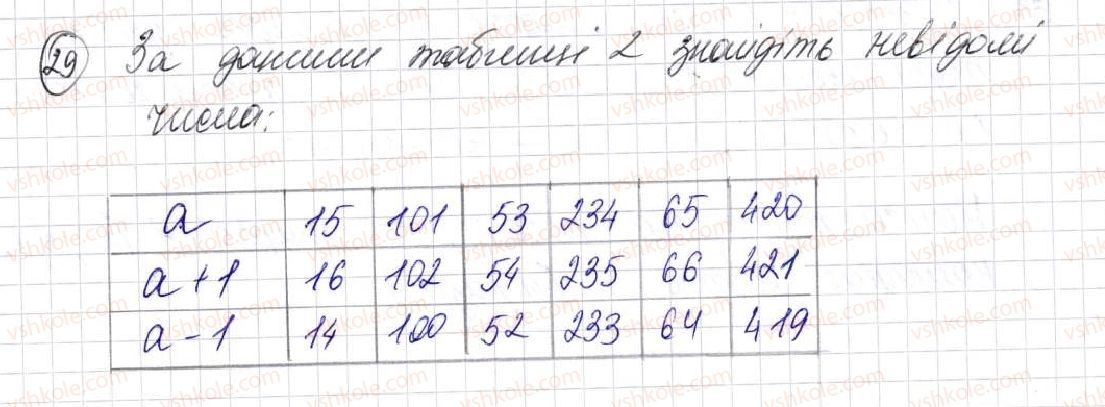 29 За даними таблиці 2 знайдіть невідомі
числа:
a 15 101 53 234 65 420
a+1 16 102 54 235 66 421
a-1 14 100 52 233 64 419